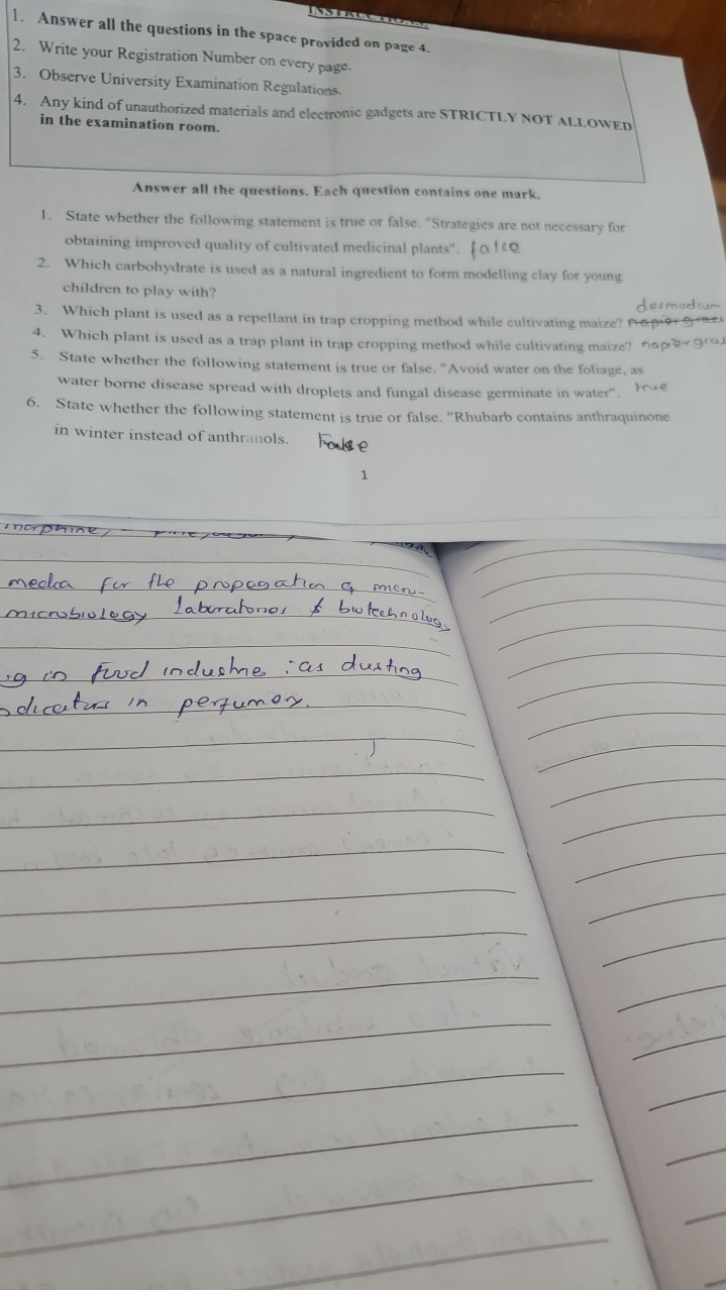 INSTRUCTIONS:
1. Answer all the questions in the space provided on page 4.
2. Write your Registration Number on every page.
3. Observe University Examination Regulations.
4. Any kind of unauthorized materials and electronic gadgets are STRICTLY NOT ALLOWED
in the examination room.
Answer all the questions. Each question contains one mark.
1. State whether the following statement is true or false. "Strategies are not necessary for
obtaining improved quality of cultivated medicinal plants". false
2. Which carbohydrate is used as a natural ingredient to form modelling clay for young
children to play with?
desmodium
3. Which plant is used as a repellant in trap cropping method while cultivating maize?
4. Which plant is used as a trap plant in trap cropping method while cultivating maize?
5. State whether the following statement is true or false. "Avoid water on the foliage, as
water borne disease spread with droplets and fungal disease germinate in water". true
6. State whether the following statement is true or false. "Rhubarb contains anthraquinone
in winter instead of anthranols. False
1
morphine,
media for the propagation of
microbiology laboratories & biotechnology
in food industrie : as dusting
in perfumes.